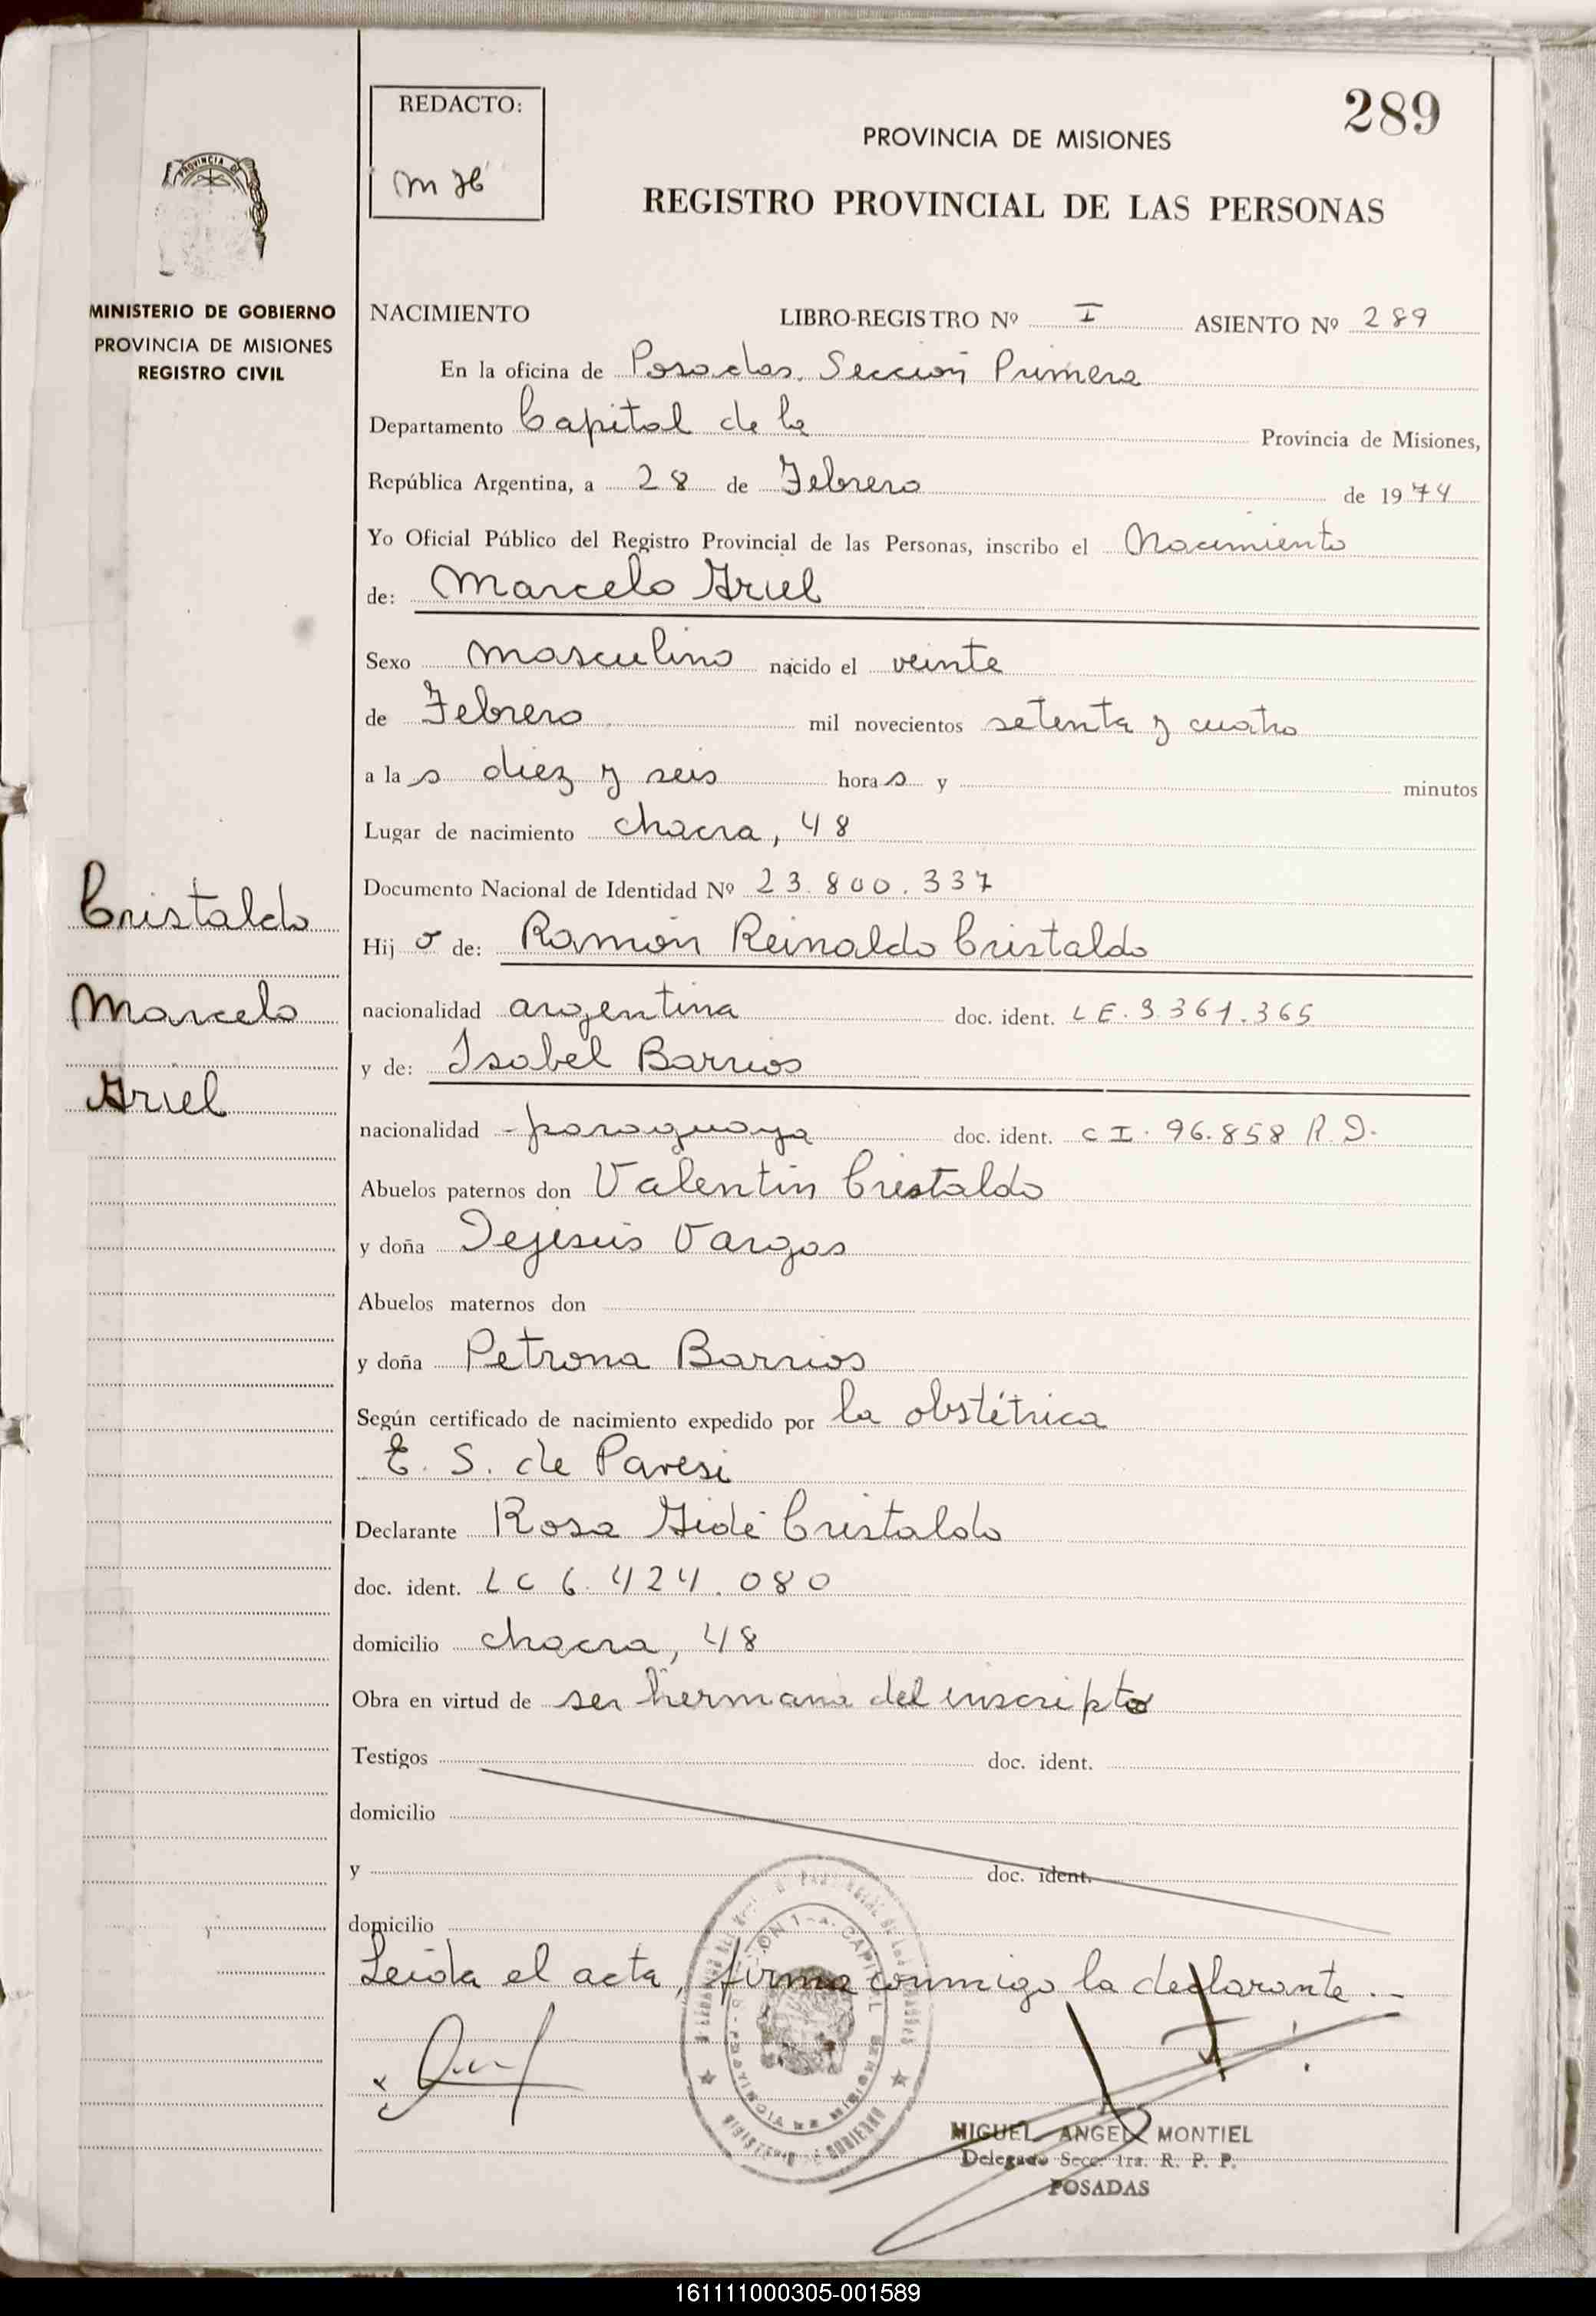 289
REDACTO:
PROVINCIA DE MISIONES
REGISTRO PROVINCIAL DE LAS PERSONAS
MINISTERIO DE GOBIERNO
PROVINCIA DE MISIONES
REGISTRO CIVIL
NACIMIENTO LIBRO-REGISTRO Nº I ASIENTO Nº 289
En la oficina de Posadas. Sección Primera
Departamento Capital de la Provincia de Misiones,
República Argentina, a 28 de Febrero de 1974
Yo Oficial Público del Registro Provincial de las Personas, inscribo el Nacimiento
de: Marcelo Ariel
Sexo masculino nacido el veinte
de Febrero mil novecientos setenta y cuatro
a las diez y seis horas y minutos
Lugar de nacimiento chacra, 48
Documento Nacional de Identidad Nº 23.800.337
Cristaldo
Marcelo
Ariel
Hijo de: Ramón Reinaldo Cristaldo
nacionalidad argentina doc. ident. LE. 3.361.365
y de: Isabel Barrios
nacionalidad paraguaya doc. ident. C I. 96.858 R.D.
Abuelos paternos don Valentín Cristaldo
y doña Dejesús Vargas
Abuelos maternos don
y doña Petrona Barrios
Según certificado de nacimiento expedido por la obstétrica
E. S. de Paresi
Declarante Rosa Aidé Cristaldo
doc. ident. LC 6.424.080
domicilio chacra, 48
Obra en virtud de ser hermana del inscripto
Testigos doc. ident.
domicilio
y doc. ident.
domicilio
Leída el acta, firma conmigo la declarante.-
MIGUEL ANGEL MONTIEL
Delegado Secc. 1ra. R. P. P.
POSADAS
161111000305-001589